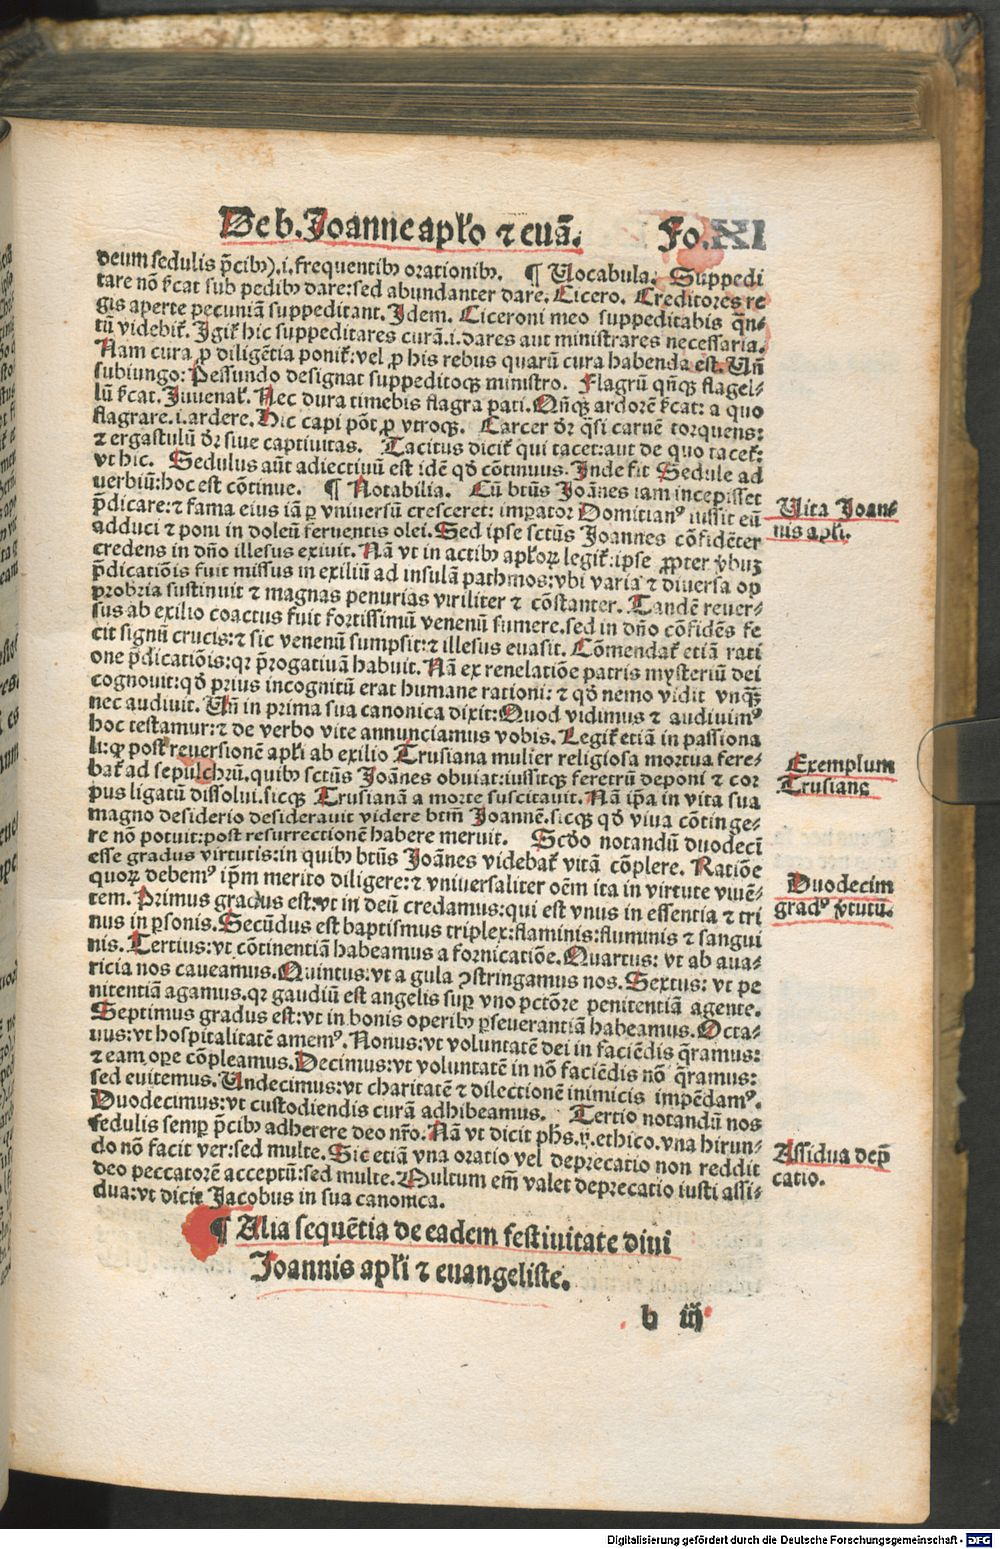 De b. Joanne apło ⁊ euā. Fo. XI
deum sedulis p̄cibꝰ).i.frequentibꝰ orationibꝰ. ¶ Uocabula. Suppedi
tare nō ſ̄cat sub pedibꝰ dare:sed abundanter dare. Cicero. Creditores re
gis aperte pecuniā suppeditant. Idem. Ciceroni meo suppeditabis q̄n-
tū videbiť. Igiť hic suppeditares curā.i.dares aut ministrares necessaria.
Nam cura ꝓ diligētia poniť:vel ꝓ his rebus quarū cura habenda est. Uñ
subiungo: Pessundo designat suppeditoqꝫ ministro. Flagrū qñqꝫ flagel-
lū ſ̄cat. Juuenaƚ. Nec dura timebis flagra pati. Qñqꝫ ardorē ſ̄cat: a quo
flagrare.i.ardere. Hic capi pōt ꝓ vtroqꝫ. Carcer dr̄ q̄si carnē torquens:
⁊ ergastulū dr̄ siue captiuitas. Tacitus diciť qui tacet:aut de quo taceť:
vt hic. Sedulus aūt adiectiuū est idē qď cōtinuus. Inde fit Sedule ad
uerbiū:hoc est cōtinue. ¶ Notabilia. Cū btūs Joānes iam incepisset
p̄dicare:⁊ fama eius iā ꝑ vniuersū cresceret: imꝑator Domitianꝰ iussit eū
adduci ⁊ poni in doleū feruentis olei. Sed ipse sctūs Joannes cōfidēter
credens in dño illesus exiuit. Nā vt in actibꝰ apƚoꝝ legiť:ipse ꝓpter v̄bū
p̄dicatiōis fuit missus in exiliū ad insulā pathmos:vbi varia ⁊ diuersa op
probria sustinuit ⁊ magnas penurias viriliter ⁊ cōstanter. Tandē reuer-
sus ab exilio coactus fuit fortissimū venenū sumere.sed in dño cōfidēs fe
cit signū crucis:⁊ sic venenū sumpsit:⁊ illesus euasit. Cōmendať etiā rati
one p̄dicatiōis:qꝛ p̄rogatiuā habuit. Nā ex reuelatiōe patris mysteriū dei
cognouit:qď prius incognitū erat humane rationi: ⁊ qď nemo vidit vnqꝫ
nec audiuit. Uñ in prima sua canonica dixit:Quod vidimus ⁊ audiuimꝰ
hoc testamur:⁊ de verbo vite annunciamus vobis. Legiť etiā in passiona
li:ꝙ post reuersionē apƚi ab exilio Trusiana mulier religiosa mortua fere-
bať ad sepulchrū.quibꝰ sctūs Joānes obuiat:iussitqꝫ feretrū deponi ⁊ cor
pus ligatū dissolui.sicqꝫ Trusianā a morte suscitauit. Nā ip̄a in vita sua
magno desiderio desiderauit videre btm̄ Joannē.sicqꝫ qď viua cōtinge-
re nō potuit:post resurrectionē habere meruit. Scďo notandū duodecī
esse gradus virtutis:in quibꝰ btūs Joānes videbať vitā cōplere. Ratiōe
quoꝝ debemꝰ ip̄m merito diligere:⁊ vniuersaliter oēm ita in virtute viuē-
tem. Primus gradus est:vt in deū credamus:qui est vnus in essentia ⁊ tri
nus in ꝑsonis. Secūdus est baptismus triplex:flaminis:fluminis ⁊ sangui
nis. Tertius:vt cōtinentiā habeamus a fornicatiōe. Quartus: vt ab aua-
ricia nos caueamus. Quintus:vt a gula ꝯstringamus nos. Sextus: vt pe
nitentiā agamus.qꝛ gaudiū est angelis suꝑ vno pctōre penitentiā agente.
Septimus gradus est:vt in bonis operibꝰ ꝑseuerantiā habeamus. Octa-
uus:vt hospitalitatē amemꝰ. Nonus:vt voluntatē dei in faciēdis q̄ramus:
⁊ eam oꝑe cōpleamus. Decimus:vt voluntatē in nō faciēdis nō q̄ramus:
sed euitemus. Undecimus:vt charitatē ⁊ dilectionē inimicis impēdamꝰ.
Duodecimus:vt custodiendis curā adhibeamus. Tertio notandū nos
sedulis semꝑ p̄cibꝰ adherere deo nr̄o. Nā vt dicit phs̄.ÿ.ethico.vna hirun-
do nō facit ver:sed multe. Sic etiā vna oratio vel deprecatio non reddit
deo peccatorē acceptū:sed multe. Multum em̄ valet deprecatio iusti assi-
dua:vt dicit Jacobus in sua canonica.
¶ Alia sequētia de eadem festiuitate diui
Joannis apƚi ⁊ euangeliste.
b iij
Uita Joan-
nis apƚi.
Exemplum
Trusiane
Duodecim
gradꝰ v̄tutū.
Assidua dep̄
catio.
Digitalisierung gefördert durch die Deutsche Forschungsgemeinschaft - DFG